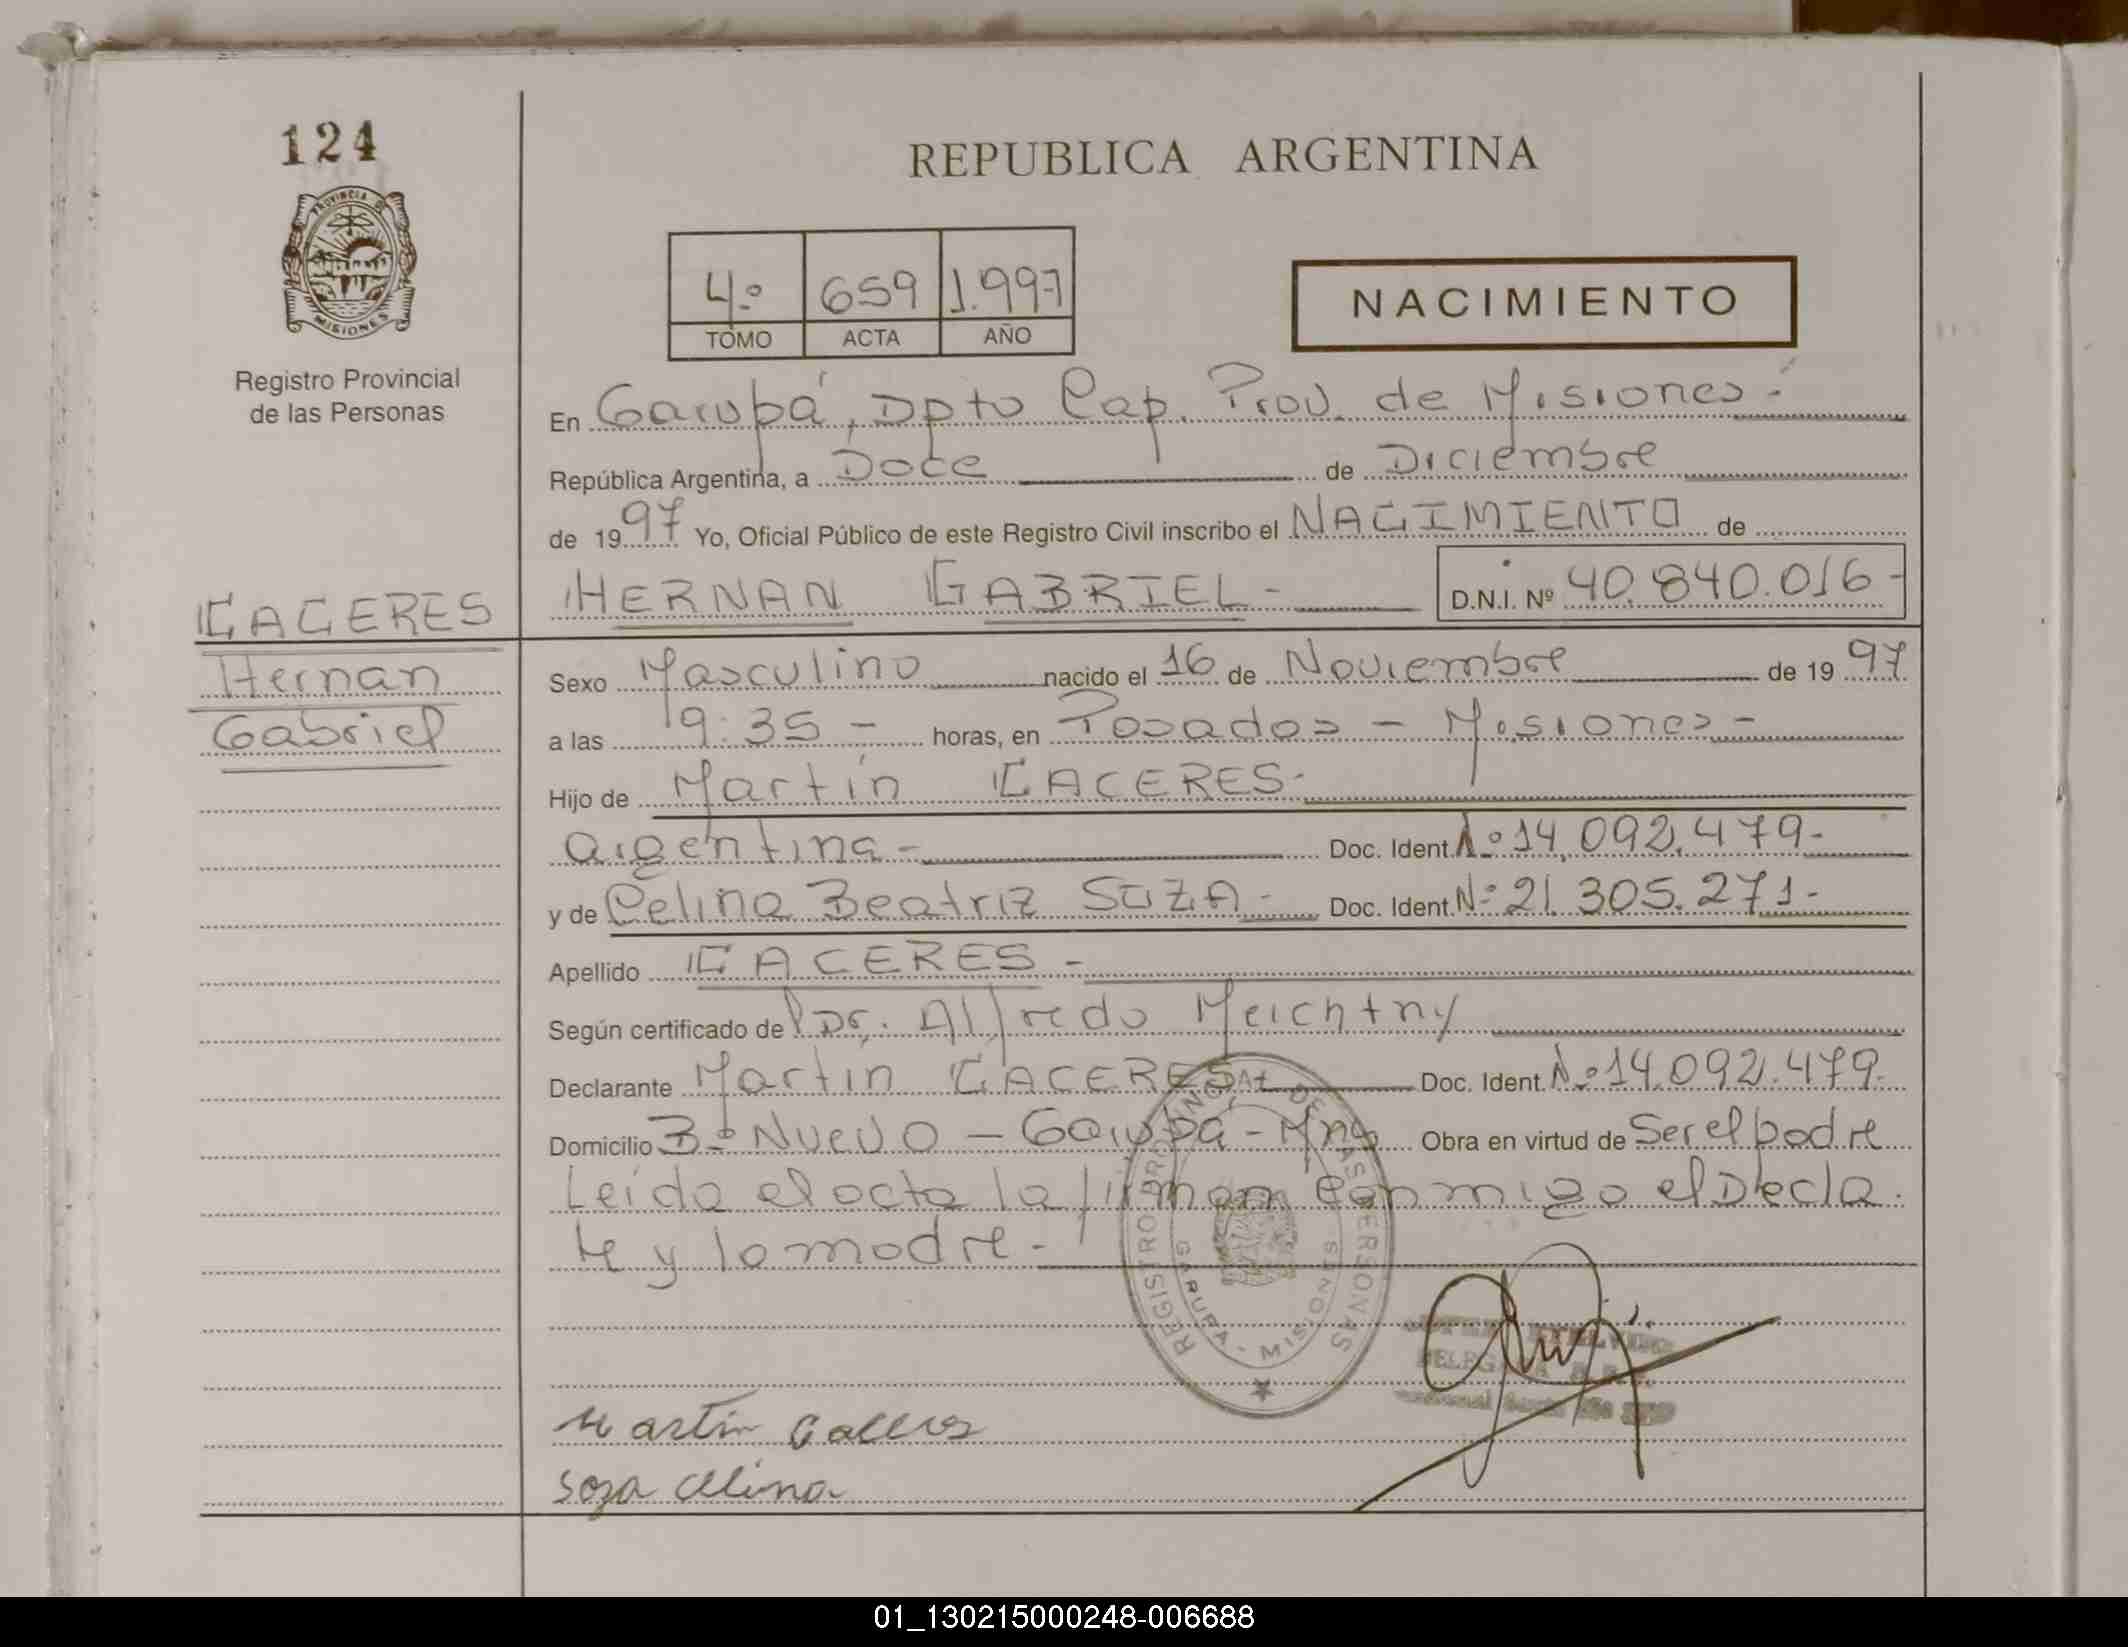 124
REPUBLICA ARGENTINA
PROVINCIA DE
MISIONES
Registro Provincial
de las Personas
4º 659 1.997
TOMO ACTA AÑO
NACIMIENTO
En Garupá, Dpto Cap. Prov. de Misiones.-
República Argentina, a Doce de Diciembre
de 1997 Yo, Oficial Público de este Registro Civil inscribo el NACIMIENTO de
CACERES
HERNAN GABRIEL- D.N.I. Nº 40.840.016-
Hernan
Gabriel
Sexo Masculino nacido el 16 de Noviembre de 1997
a las 19:35 - horas, en Posadas - Misiones-
Hijo de Martín CACERES-
argentina- Doc. Ident. Nº 14.092.479-
y de Celina Beatriz SOZA- Doc. Ident. Nº 21.305.271-
Apellido CACERES-
Según certificado de Dr. Alfredo
Declarante Martín CACERES Doc. Ident. Nº 14.092.479-
Domicilio Bº Nuevo - Garupá - Mnes Obra en virtud de Ser el padre
Leída el acta la firman conmigo el Decla
te y la madre-
REGISTRO PROVINCIAL DE LAS PERSONAS
GARUPA - MISIONES
Martin Caceres
Soza Celina
01_130215000248-006688